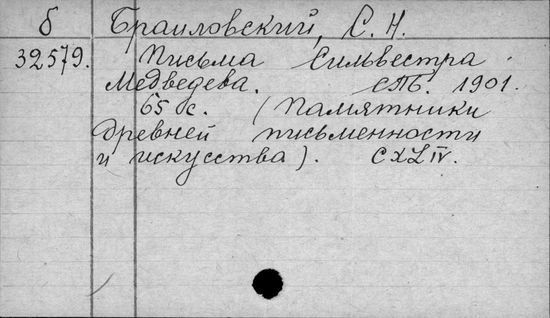 б Браиловский, С. Н.
32579. Письма Сильвестра
Медведева. СПб. 1901.
65 с. (Памятники
древней письменности
и искусства). CXLIV.